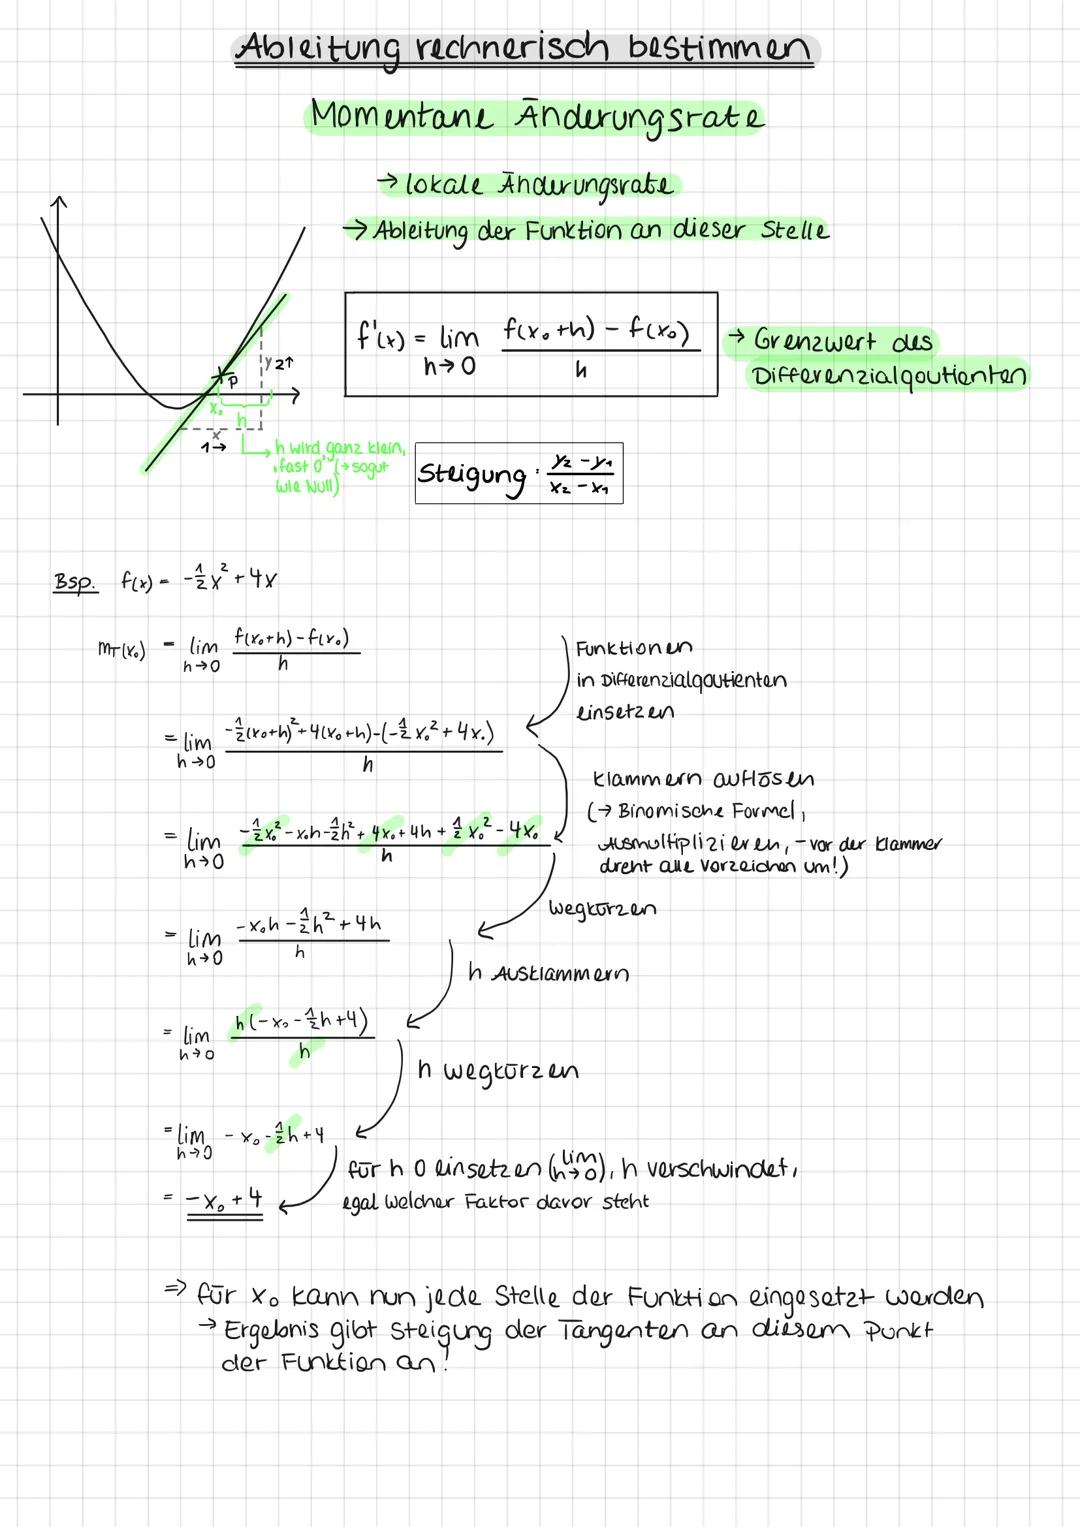 Ableitung rechnerisch bestimmen
Momentane Änderungsrate
→ lokale Änderungsrate
→ Ableitung der Funktion an dieser Stelle
f'(x) = lim h→0 (f(x₀+h) - f(x₀)) / h
→ Grenzwert des
Differenzialqoutienten
P
y 2↑
x₀
h
x
1→
h wird ganz klein,
"fast 0" (→ sogut
wie Null)
Steigung: (y₂ - y₁) / (x₂ - x₁)
Bsp. f(x) = -½x² + 4x
mT(x₀) = lim h→0 (f(x₀+h) - f(x₀)) / h
Funktionen
in Differenzialqoutienten
einsetzen
= lim h→0 (-½(x₀+h)² + 4(x₀+h) - (-½x₀² + 4x₀)) / h
Klammern auflösen
(→ Binomische Formel,
Ausmultiplizieren, - vor der Klammer
dreht alle Vorzeichen um!)
= lim h→0 (-½x₀² - x₀h - ½h² + 4x₀ + 4h + ½x₀² - 4x₀) / h
wegkürzen
= lim h→0 (-x₀h - ½h² + 4h) / h
h Ausklammern
= lim h→0 h(-x₀ - ½h + 4) / h
h wegkürzen
= lim h→0 -x₀ - ½h + 4
für h 0 einsetzen (lim h→0), h verschwindet,
egal welcher Faktor davor steht
= -x₀ + 4
⇒ für x₀ kann nun jede Stelle der Funktion eingesetzt werden
→ Ergebnis gibt Steigung der Tangenten an diesem Punkt
der Funktion an!